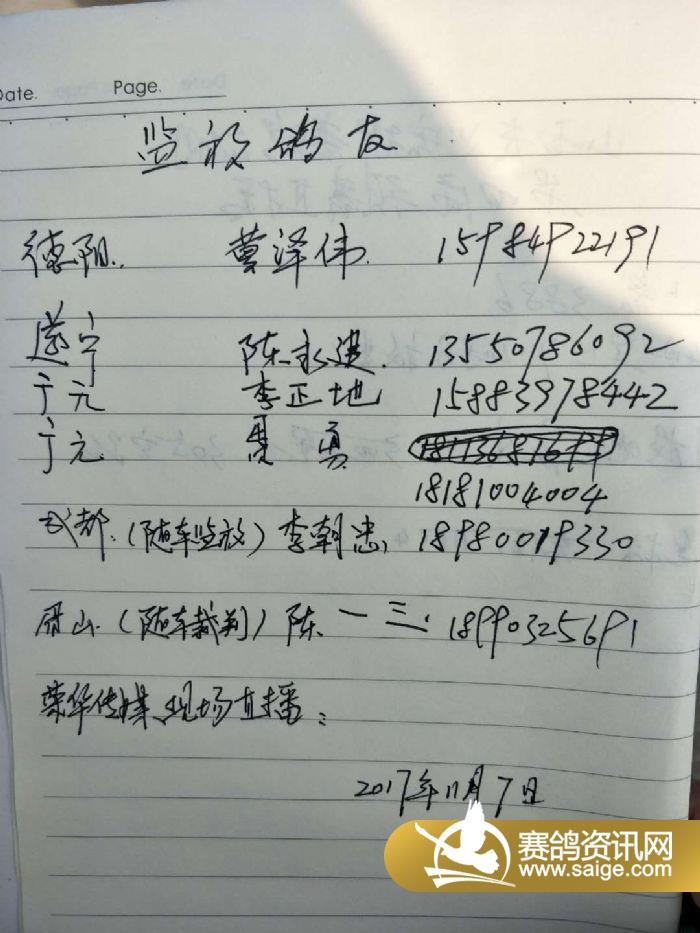 Date. Page.
监放鸽友
德阳. 曹泽伟. 15984922191
遂宁 陈永建. 13550786092
广元 李正地 15883978442
广元 周勇
18181004004
成都.(随车监放)李朝忠, 18980019330
眉山.(随车裁判)陈一三. 18990325691
荣华传媒、现场直播:
2017年11月7日
赛鸽资讯网
www.saige.com